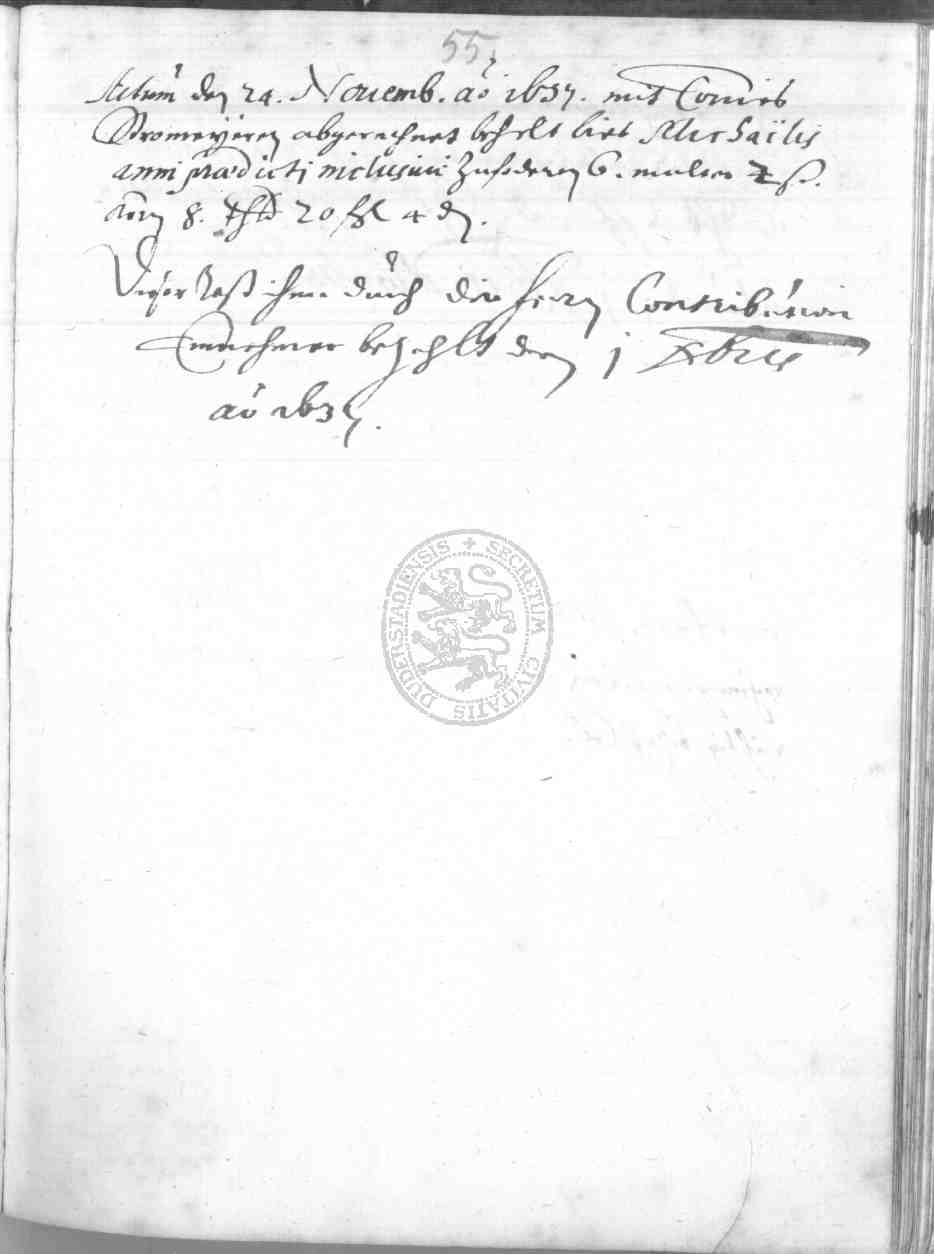 55
Actum den 24. Nouemb. ao 1637. mit Tonnies
Stromeyeren abgerechnet behelt bies Michaëlis
anni prædicti inclusiui Zufoderen 6. malter
Korn 8. thlr 20 ßl 4 d.
Dieser Rest ihme durch die Hern Contribution
Einnehmer bezahlt den 1 Xbris
ao 1637.
SECRETUM CIVITATIS DUDERSTADIENSIS